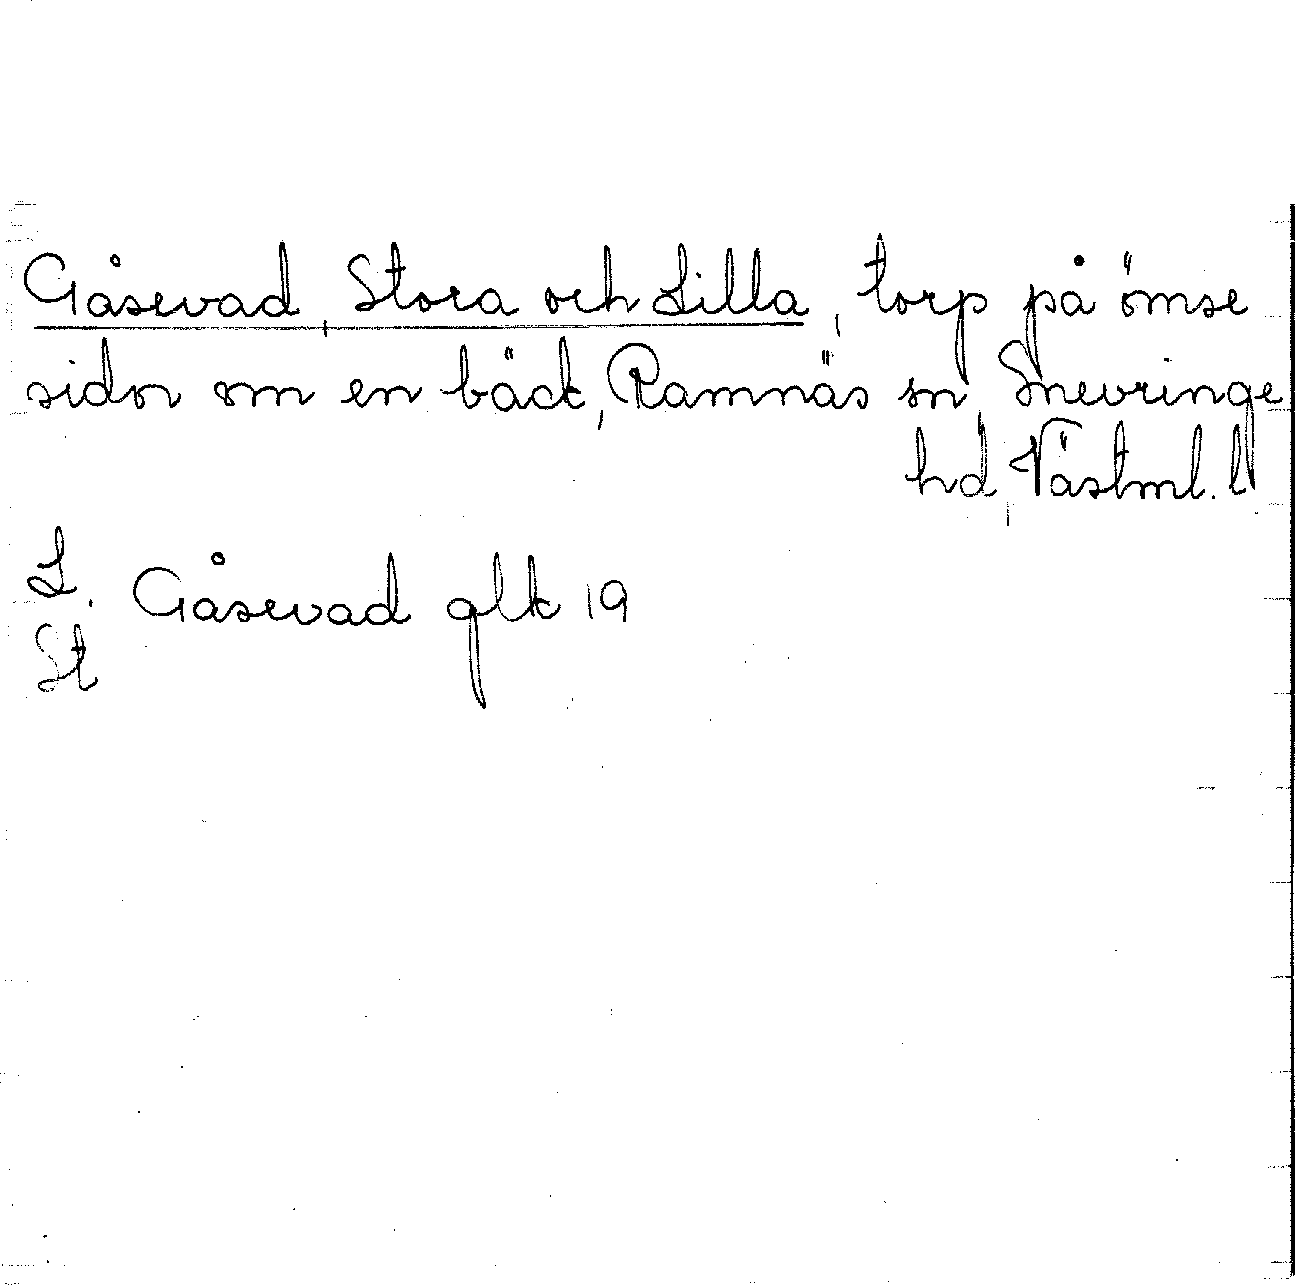 Gåsevad, Stora och Lilla, torp på ömse
sidor om en bäck, Ramnäs sn, Snevringe
hd, Västml. l
L. Gåsevad glk 19
St